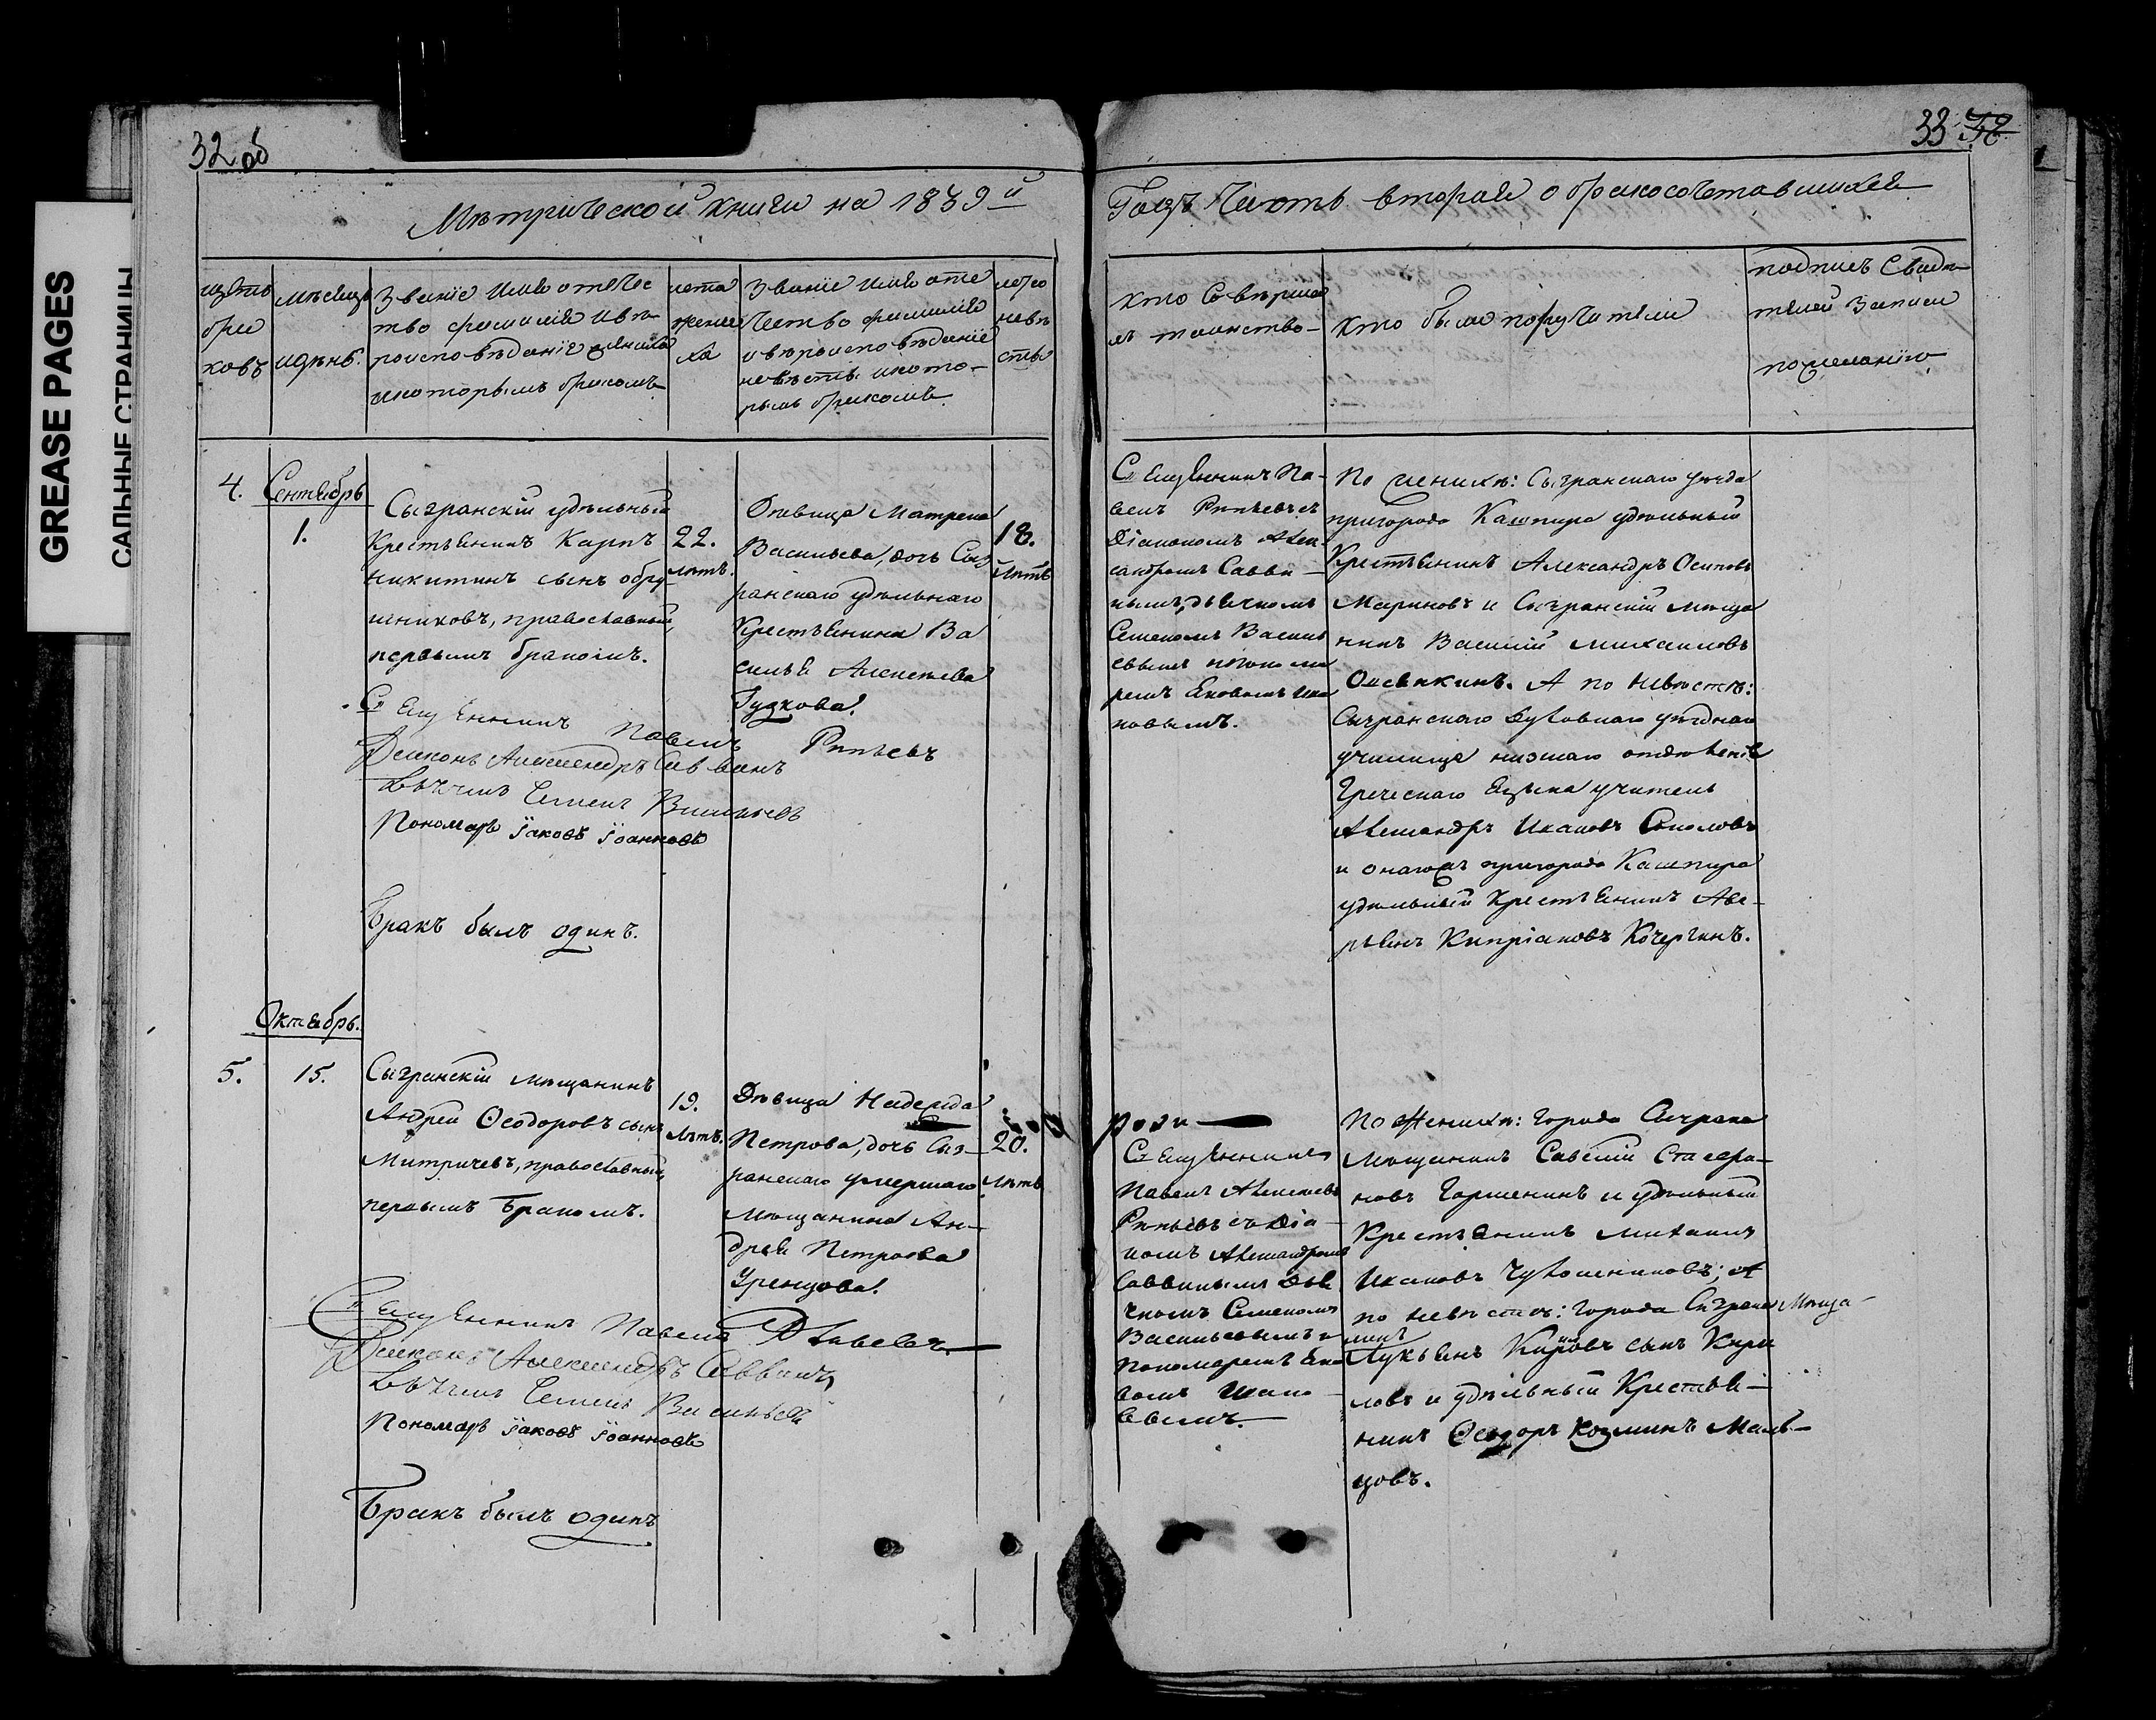 GREASE PAGES
САЛЬНЫЕ СТРАНИЦЫ
32 об
Метрической книги на 1839й
щетъ
бра
ковъ
мѣсяцъ
и день.
Званіе имя отечес
тво фамилія и вѣ-
роисповѣданіе жениха
и которымъ бракомъ
лета
жени
ха
Званіе имя оте
чество фамилія
и вѣроисповѣданіе
невѣсты и кото-
рымъ бракомъ
лета
невѣ
сты
4.
Сентябрь
1.
Сызранскій удѣльный
Крестьянинъ Карпъ
Никитинъ сынъ обру-
чниковъ, православный,
первымъ бракомъ.
22.
лѣтъ.
Дѣвица Матрена
Васильева, дочь Сыз
ранскаго удѣльнаго
Крестьянина Ва
силья Алексѣева
Гудкова.
18.
лѣтъ
Священникъ Павелъ Рѣпьевъ
Діаконъ Александръ Саввинъ
Дьячекъ Семенъ Васильевъ
Пономарь Іаковъ Іоанновъ
Бракъ былъ одинъ.
Октябрь.
5.
15.
Сызранскій мѣщанинъ
Андрей Ѳеодоровъ сынъ
Митричевъ, православный,
первымъ бракомъ.
19.
лѣтъ.
Дѣвица Надежда
Петрова, дочь Сыз-
ранскаго умершаго
мѣщанина Ан-
дрея Петрова
Уренцова.
20.
лѣтъ
Священникъ Павелъ
Діаконъ Александръ Саввинъ
Дьячекъ Семенъ Васильевъ
Пономарь Іаковъ Іоанновъ
Бракъ былъ одинъ
33
Годъ Часть вторая о бракосочетавшихся
кто Соверша
лъ таинство-
кто были поручители
подпись Свидѣ
телей Записи
по желанію
Священникъ Па-
велъ Рѣпьевъ съ
Діакономъ Алек-
сандромъ Савви-
нымъ, дьячкомъ
Семеномъ Василь
евымъ и понома
ремъ Яковомъ Ива
новымъ.
По женихѣ: Сызранскаго уѣзда
пригорода Кашпира удѣльный
Крестьянинъ Александръ Осиповъ
Мариновъ и Сызранскій мѣща
нинъ Василій Михаиловъ
Овсянкинъ. А по невѣстѣ:
Сызранскаго духовнаго уѣзднаго
училища низшаго отдѣленія
Греческаго языка учитель
Александръ Ивановъ Соколовъ
и онагожъ пригорода Кашпира
удѣльный Крестьянинъ Аве-
рьянъ Кипріановъ Кочергинъ.
Священникъ
Павелъ Алексѣевъ
Рѣпьевъ съ Діа-
кономъ Александромъ
Саввинымъ Дья
чкомъ Семеномъ
Васильевымъ и
Пономаремъ Яко
вомъ Ивано-
вымъ.
По женихѣ: города Сызрана
Мѣщанинъ Савелій Стафее-
новъ Горшенинъ и удѣльный
Крестьянинъ Михаилъ
Ивановъ Чувошениковъ; А
по невѣстѣ: города Сызрана Мѣща-
нинъ
Лукьянъ Кириловъ сынъ Кири
ловъ и удѣльный Крестья-
нинъ Ѳеодоръ Козминъ Маль-
цовъ.